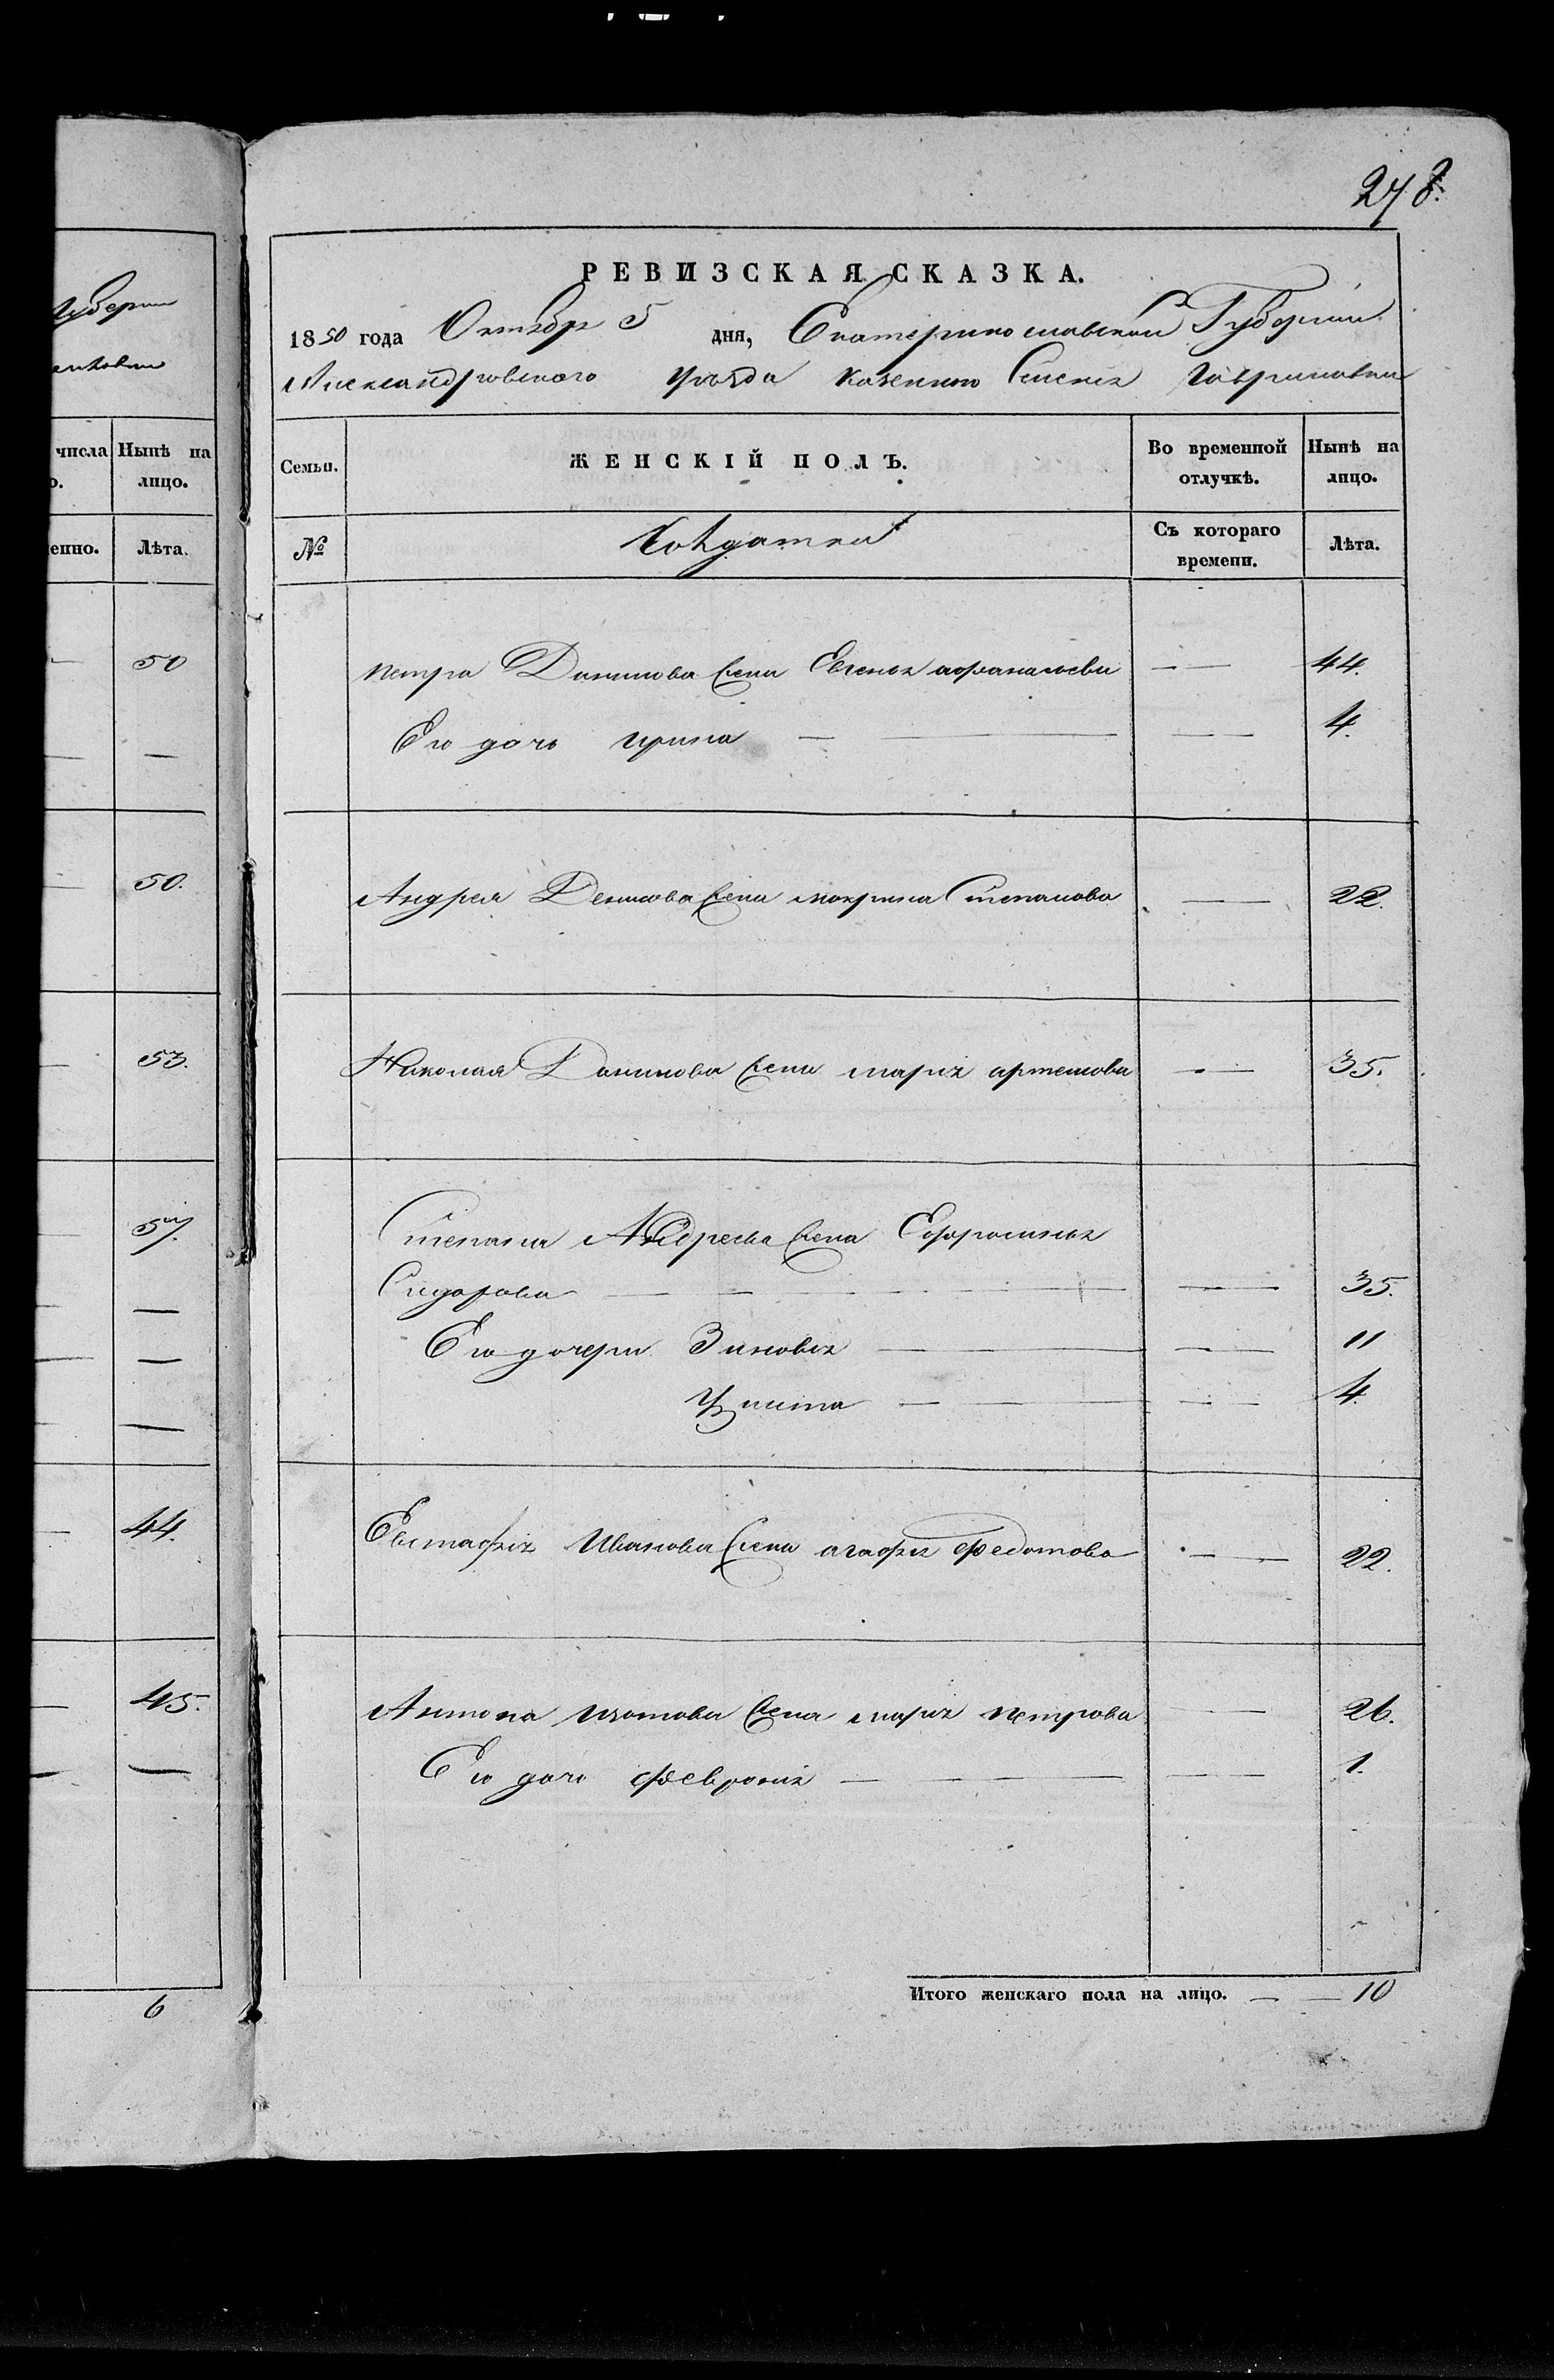 губерни
числа Нынѣ на
о. лицо.
енно. Лѣта.
50
—
50.
53.
57.
—
—
—
44.
45.
—
6
278.
РЕВИЗСКАЯ СКАЗКА.
1850 года Октября 5 дня, Екатеринославской Губернии
Александровского уѣзда казенного Селения Гавриловки
Семьи. ЖЕНСКІЙ ПОЛЪ. Во временной отлучкѣ. Нынѣ на лицо.
№ Солдатки Съ котораго времени. Лѣта.
Петра Данилова жена Евгения афанасьева — — 44.
Его дочь ирина — — — — 4.
Андрея Денисова жена макрина Степанова — — 22.
Николая Данилова жена мария артемова — — 35.
Степана Андреева жена Ефросиния
Сидорова — — — — — — 35.
Его дочери Зиновия — — — — 11
Улита — — — — 4.
Евстафия Иванова жена агафия Федотова — — 22.
Антона изотова жена мария петрова — — 26.
Его дочь феврония — — — — 1.
Итого женскаго пола на лицо. — — 10